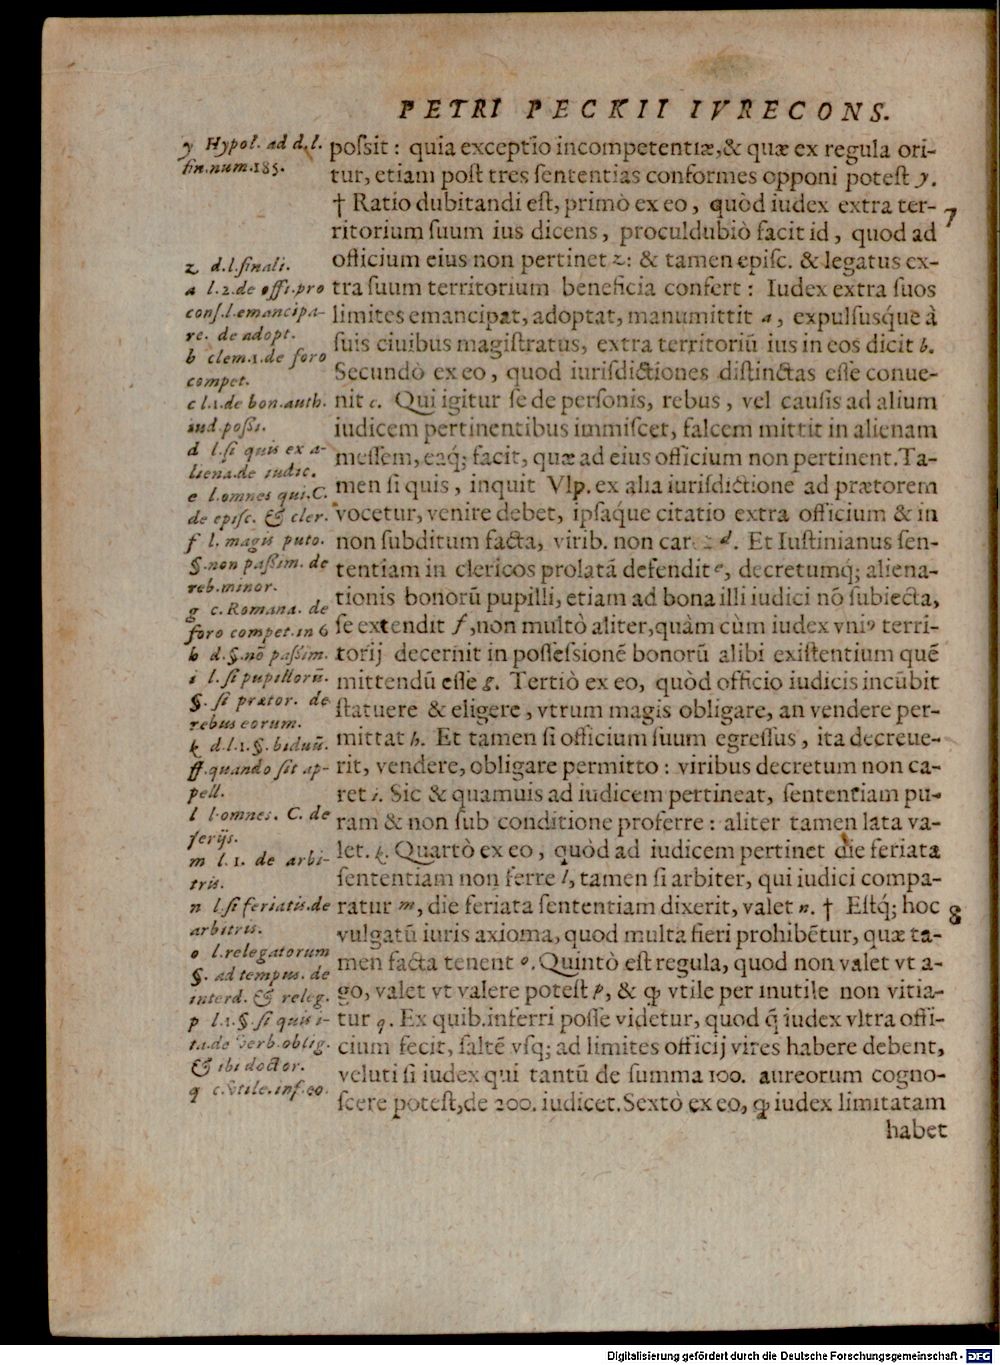 PETRI PECKII IVRECONS.
y Hypol. ad d. l.
fin. num. 185.
poſsit : quia exceptio incompetentiæ, & quæ ex regula ori-
tur, etiam poſt tres ſententias conformes opponi poteſt y.
† Ratio dubitandi eſt, primò ex eo, quòd iudex extra ter-
7
ritorium ſuum ius dicens, proculdubiò facit id, quod ad
officium eius non pertinet z: & tamen epiſc. & legatus ex-
tra ſuum territorium beneficia confert : Iudex extra ſuos
limites emancipat, adoptat, manumittit a, expulſusque à
ſuis ciuibus magiſtratus, extra territoriũ ius in eos dicit b.
Secundò ex eo, quod iuriſdictiones diſtinctas eſſe conue-
nit c. Qui igitur ſe de perſonis, rebus, vel cauſis ad alium
iudicem pertinentibus immiſcet, falcem mittit in alienam
meſſem, eaq́; facit, quæ ad eius officium non pertinent. Ta-
men ſi quis, inquit Vlp. ex alia iuriſdictione ad prætorem
vocetur, venire debet, ipſaque citatio extra officium & in
non ſubditum facta, virib. non car d. Et Iuſtinianus ſen-
tentiam in clericos prolatã defendit e, decretumq́; aliena-
tionis bonorũ pupilli, etiam ad bona illi iudici nõ ſubiecta,
ſe extendit f, non multò aliter, quàm cùm iudex vniꝰ terri-
torij decernit in poſſeſsionẽ bonorũ alibi exiſtentium quẽ
mittendũ eſſe g. Tertiò ex eo, quòd officio iudicis incũbit
ſtatuere & eligere, vtrum magis obligare, an vendere per-
mittat h. Et tamen ſi officium ſuum egreſſus, ita decreue-
rit, vendere, obligare permitto : viribus decretum non ca-
ret i. Sic & quamuis ad iudicem pertineat, ſententiam pu-
ram & non ſub conditione proferre : aliter tamen lata va-
let. k. Quartò ex eo, quòd ad iudicem pertinet die feriata
ſententiam non ferre l, tamen ſi arbiter, qui iudici compa-
ratur m, die feriata ſententiam dixerit, valet n. † Eſtq́; hoc
8
vulgatũ iuris axioma, quod multa fieri prohibẽtur, quæ ta-
men facta tenent o. Quintò eſt regula, quod non valet vt a-
go, valet vt valere poteſt p, & ꝙ vtile per inutile non vitia-
tur q. Ex quib. inferri poſſe videtur, quod q̃ iudex vltra offi-
cium fecit, ſaltẽ vſq; ad limites officij vires habere debent,
veluti ſi iudex qui tantũ de ſumma 100. aureorum cogno-
ſcere poteſt, de 200. iudicet. Sextò ex eo, ꝙ iudex limitatam
habet
z d. l. finali.
a l. 2. de offi. pro
conſ. l. emancipa-
re. de adopt.
b clem. 1. de foro
compet.
c l. 1. de bon. auth.
iud. poſſi.
d l. ſi quis ex a-
liena. de iudic.
e l. omnes qui. C.
de epiſc. & cler.
f l. magis puto.
§. non paſſim. de
reb. minor.
g c. Romana. de
foro compet. in 6
h d. §. nõ paſſim.
i l. ſi pupillorũ.
§. ſi prætor. de
rebus eorum.
k d. l. 1. §. biduũ.
ff. quando ſit ap-
pell.
l l. omnes. C. de
ferijs.
m l. 1. de arbi-
tris.
n l. ſi feriatis. de
arbitris.
o l. relegatorum
§. ad tempus. de
interd. & releg.
p l. 1. §. ſi quis i-
ta. de verb. oblig.
& ibi doctor.
q c. vtile. inf. eo.
Digitalisierung gefördert durch die Deutsche Forschungsgemeinschaft - DFG